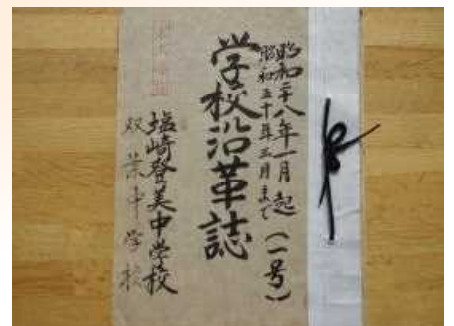 昭和二十八年一月起（一号）
昭和五十年三月まで
学校沿革誌
塩崎登美中学校
双葉中学校